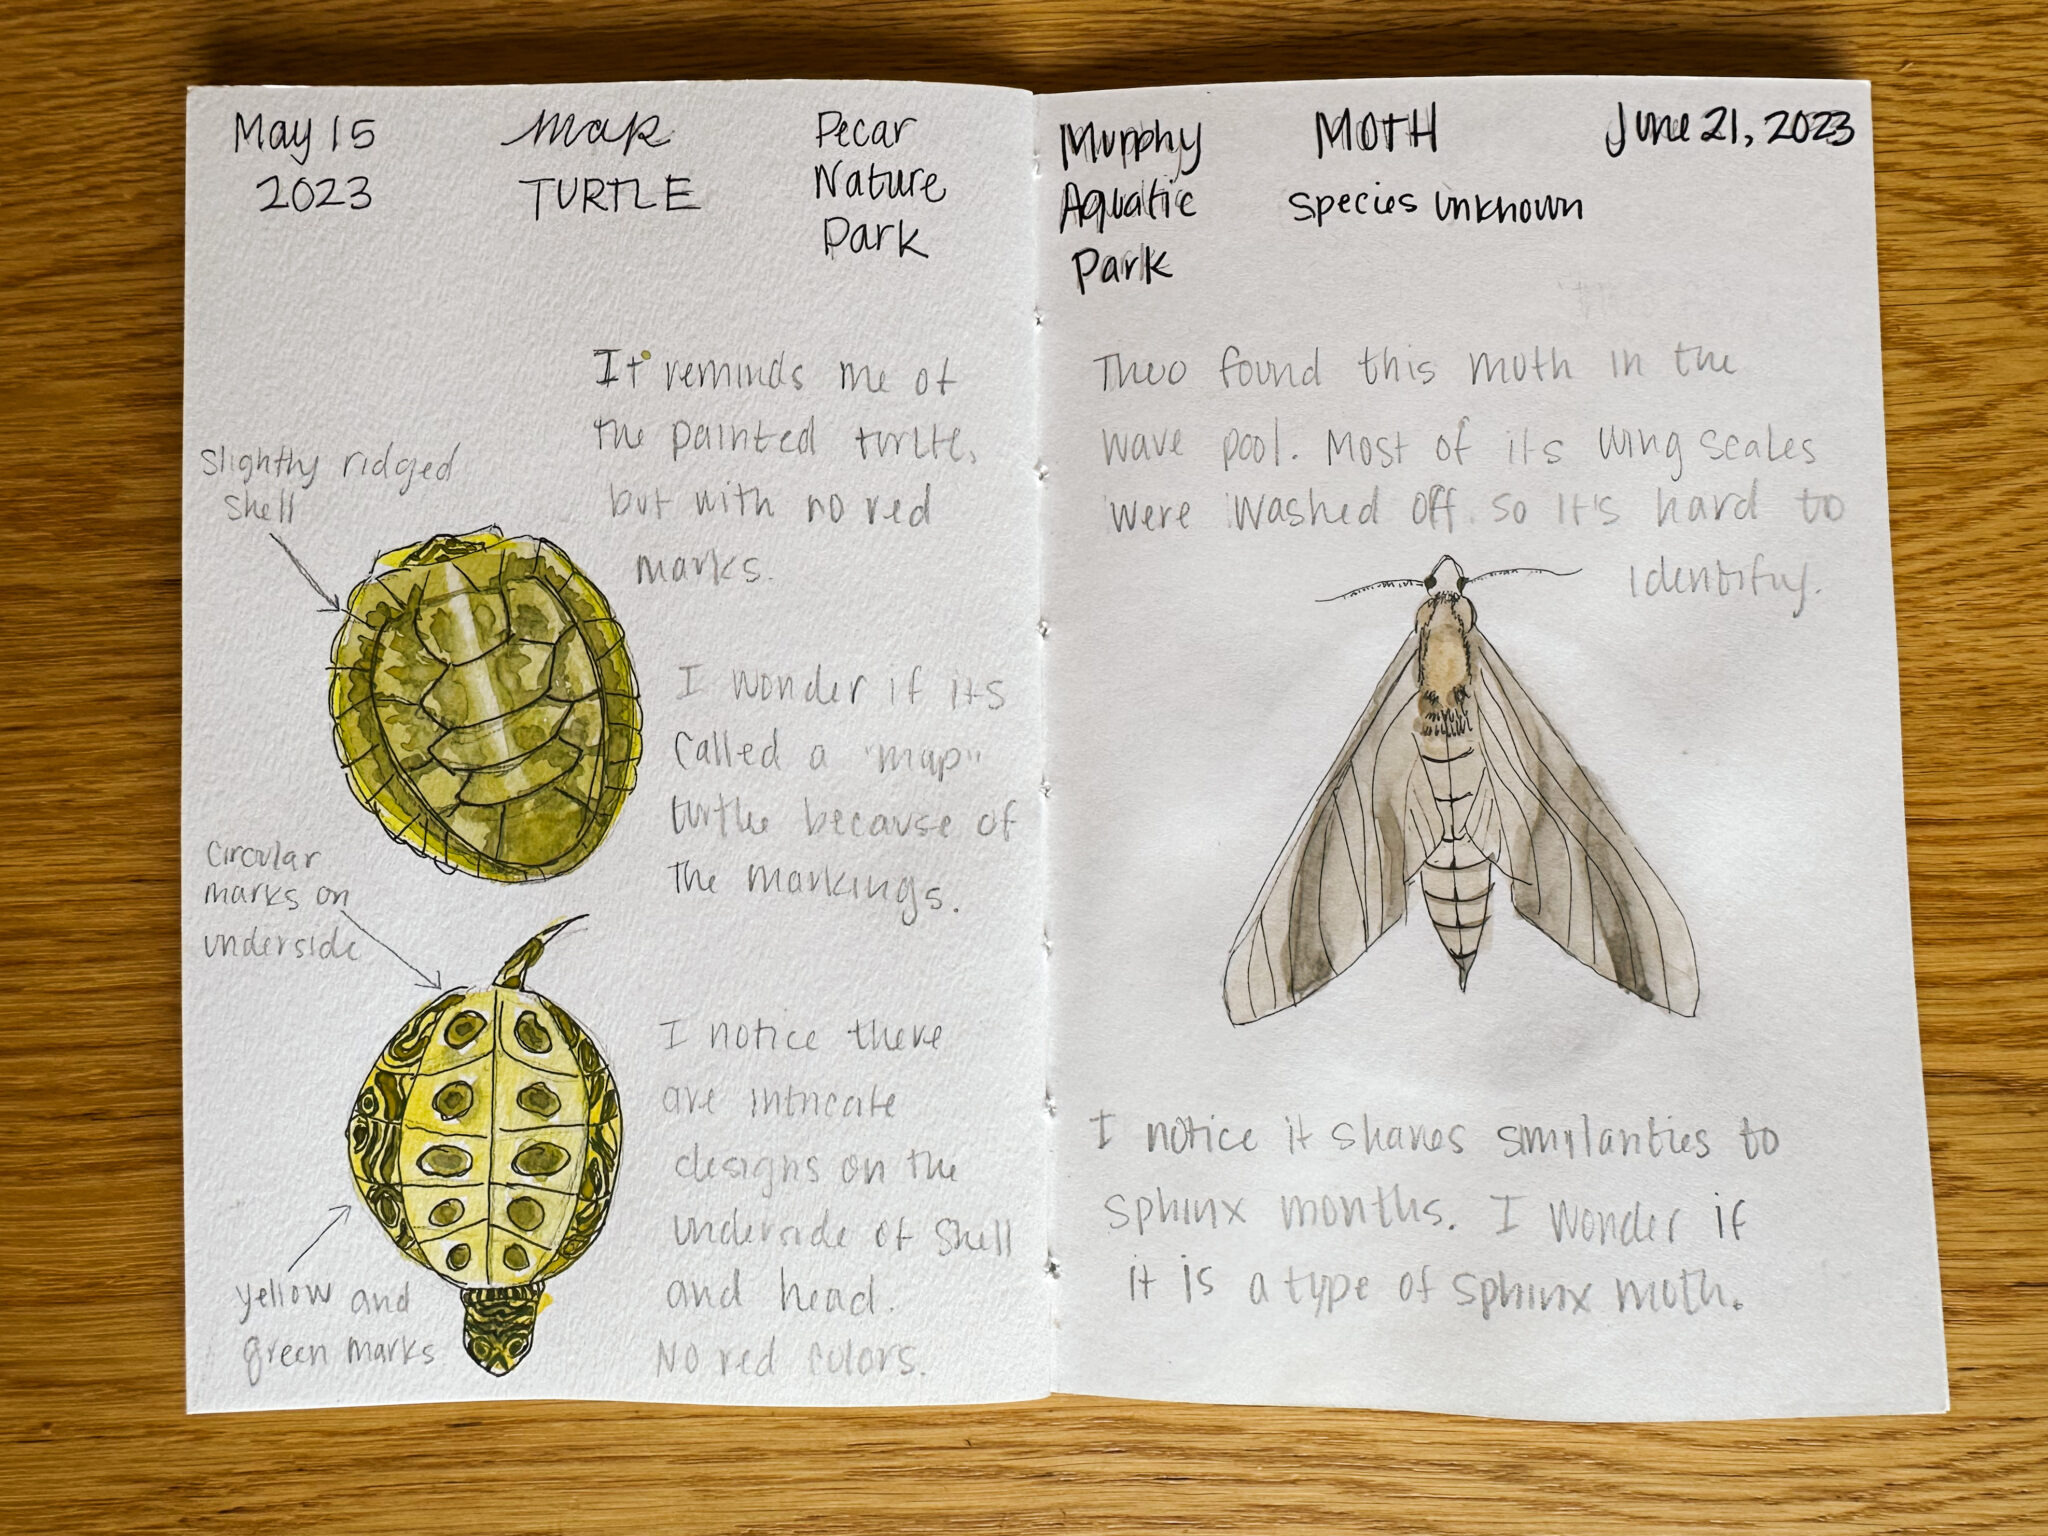 May 15
2023
Map
TURTLE
Pecar
Nature
Park
It reminds me of
the painted turtle,
but with no red
marks.
Slightly ridged
shell
I wonder if its
called a "map"
turtle because of
the markings.
Circular
marks on
underside
I notice there
are intricate
designs on the
underside of shell
and head.
No red colors.
yellow and
green marks
Murphy
Aquatic
Park
MOTH
species unknown
June 21, 2023
Theo found this moth in the
wave pool. Most of its wing scales
were washed off. So it's hard to
identify.
I notice it shares similarities to
sphinx months. I wonder if
it is a type of sphinx moth.